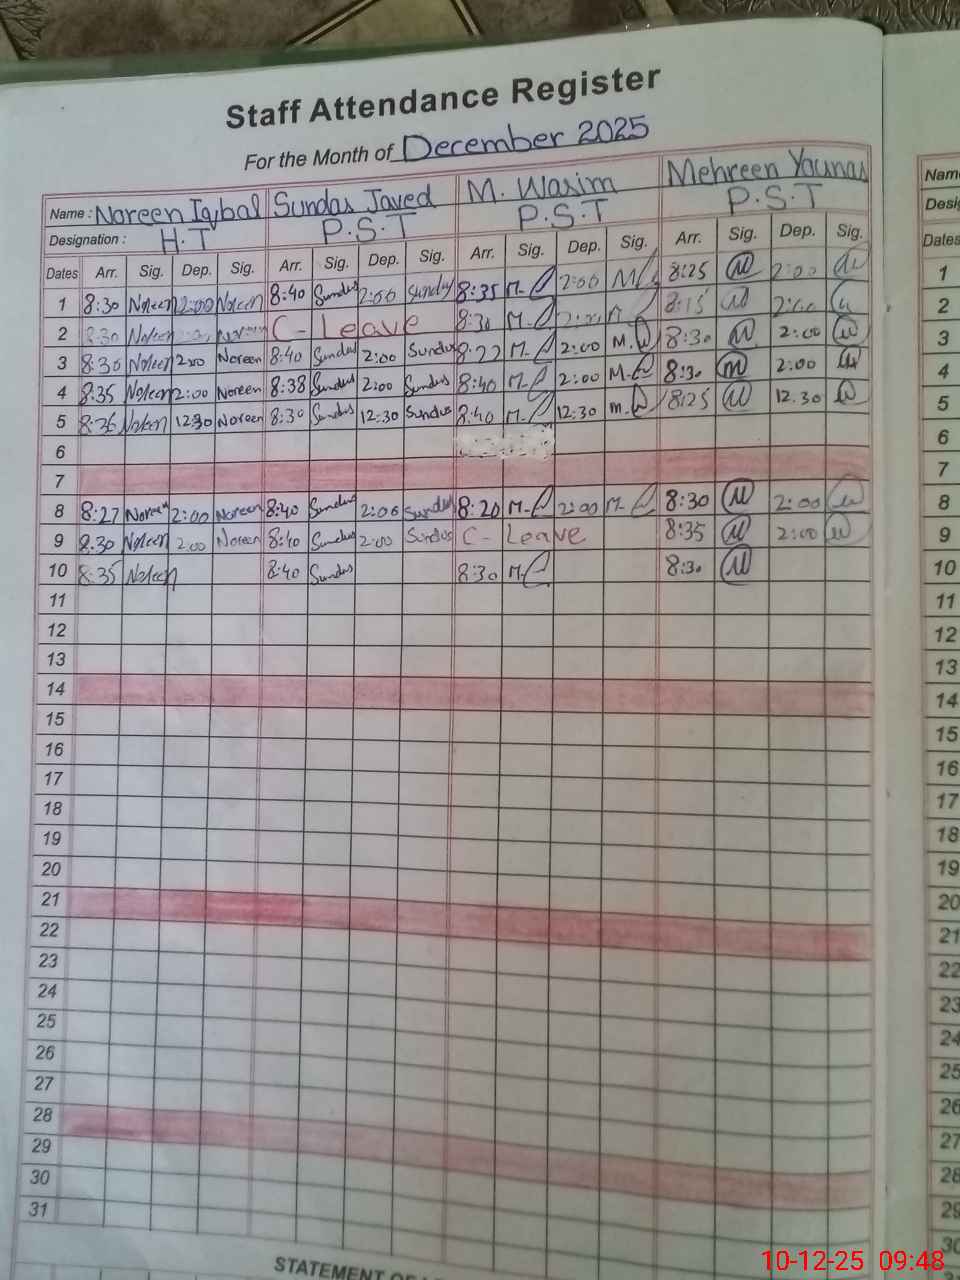 Staff Attendance Register
For the Month of December 2025
Name : Noreen Iqbal Sundas Javed M. Wasim Mehreen Younas
Designation : H.T P.S.T P.S.T P.S.T
Dates Arr. Sig. Dep. Sig. Arr. Sig. Dep. Sig. Arr. Sig. Dep. Sig. Arr. Sig. Dep. Sig.
1 8:30 Noreen 2:00 Noreen 8:40 Sundus 2:00 Sundus 8:35 2:00 8:25 2:00
2 8:30 Noreen Noreen C - Leave 8:30 8:15 2:00
3 8:30 Noreen 2:00 Noreen 8:40 Sundus 2:00 Sundus 8:22 2:00 8:30 2:00
4 8:35 Noreen 2:00 Noreen 8:38 Sundus 2:00 Sundus 8:40 2:00 8:30 2:00
5 8:36 Noreen 12:30 Noreen 8:30 Sundus 12:30 Sundus 8:40 12:30 8:25 12.30
6
7
8 8:27 Noreen 2:00 Noreen 8:40 Sundus 2:00 Sundus 8:20 2:00 8:30 2:00
9 8.30 Noreen 2:00 Noreen 8:40 Sundus 2:00 Sundus C - Leave 8:35 2:00
10 8:35 Noreen 8:40 Sundus 8:30 8:30
11
12
13
14
15
16
17
18
19
20
21
22
23
24
25
26
27
28
29
30
31
STATEMENT OF
Name
Desig
Dates
1
2
3
4
5
6
7
8
9
10
11
12
13
14
15
16
17
18
19
20
21
22
23
24
25
26
27
28
29
30
10-12-25 09:48